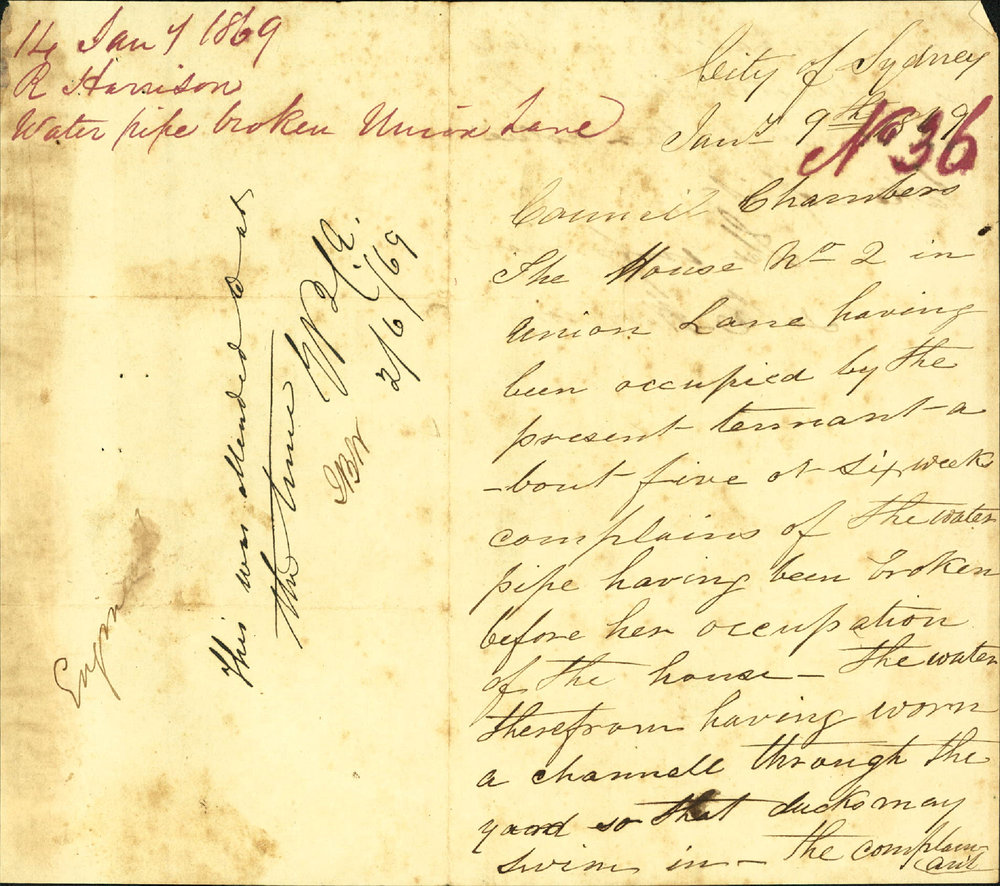 14 Jany 1869
R Harrison
Water pipe broken Union Lane
This was attended to at
the time
2/6/69
Engineer
City of Sydney
Jany 9th 1869
No 36
Council Chambers
The House No 2 in
Union Lane having
been occupied by the
present tennant a
-bout five or six weeks
complains of the water
pipe having been broken
before her occupation
of the house - the water
therefrom having worn
a channell through the
yard so that ducks may
swim in - the complain-
ant